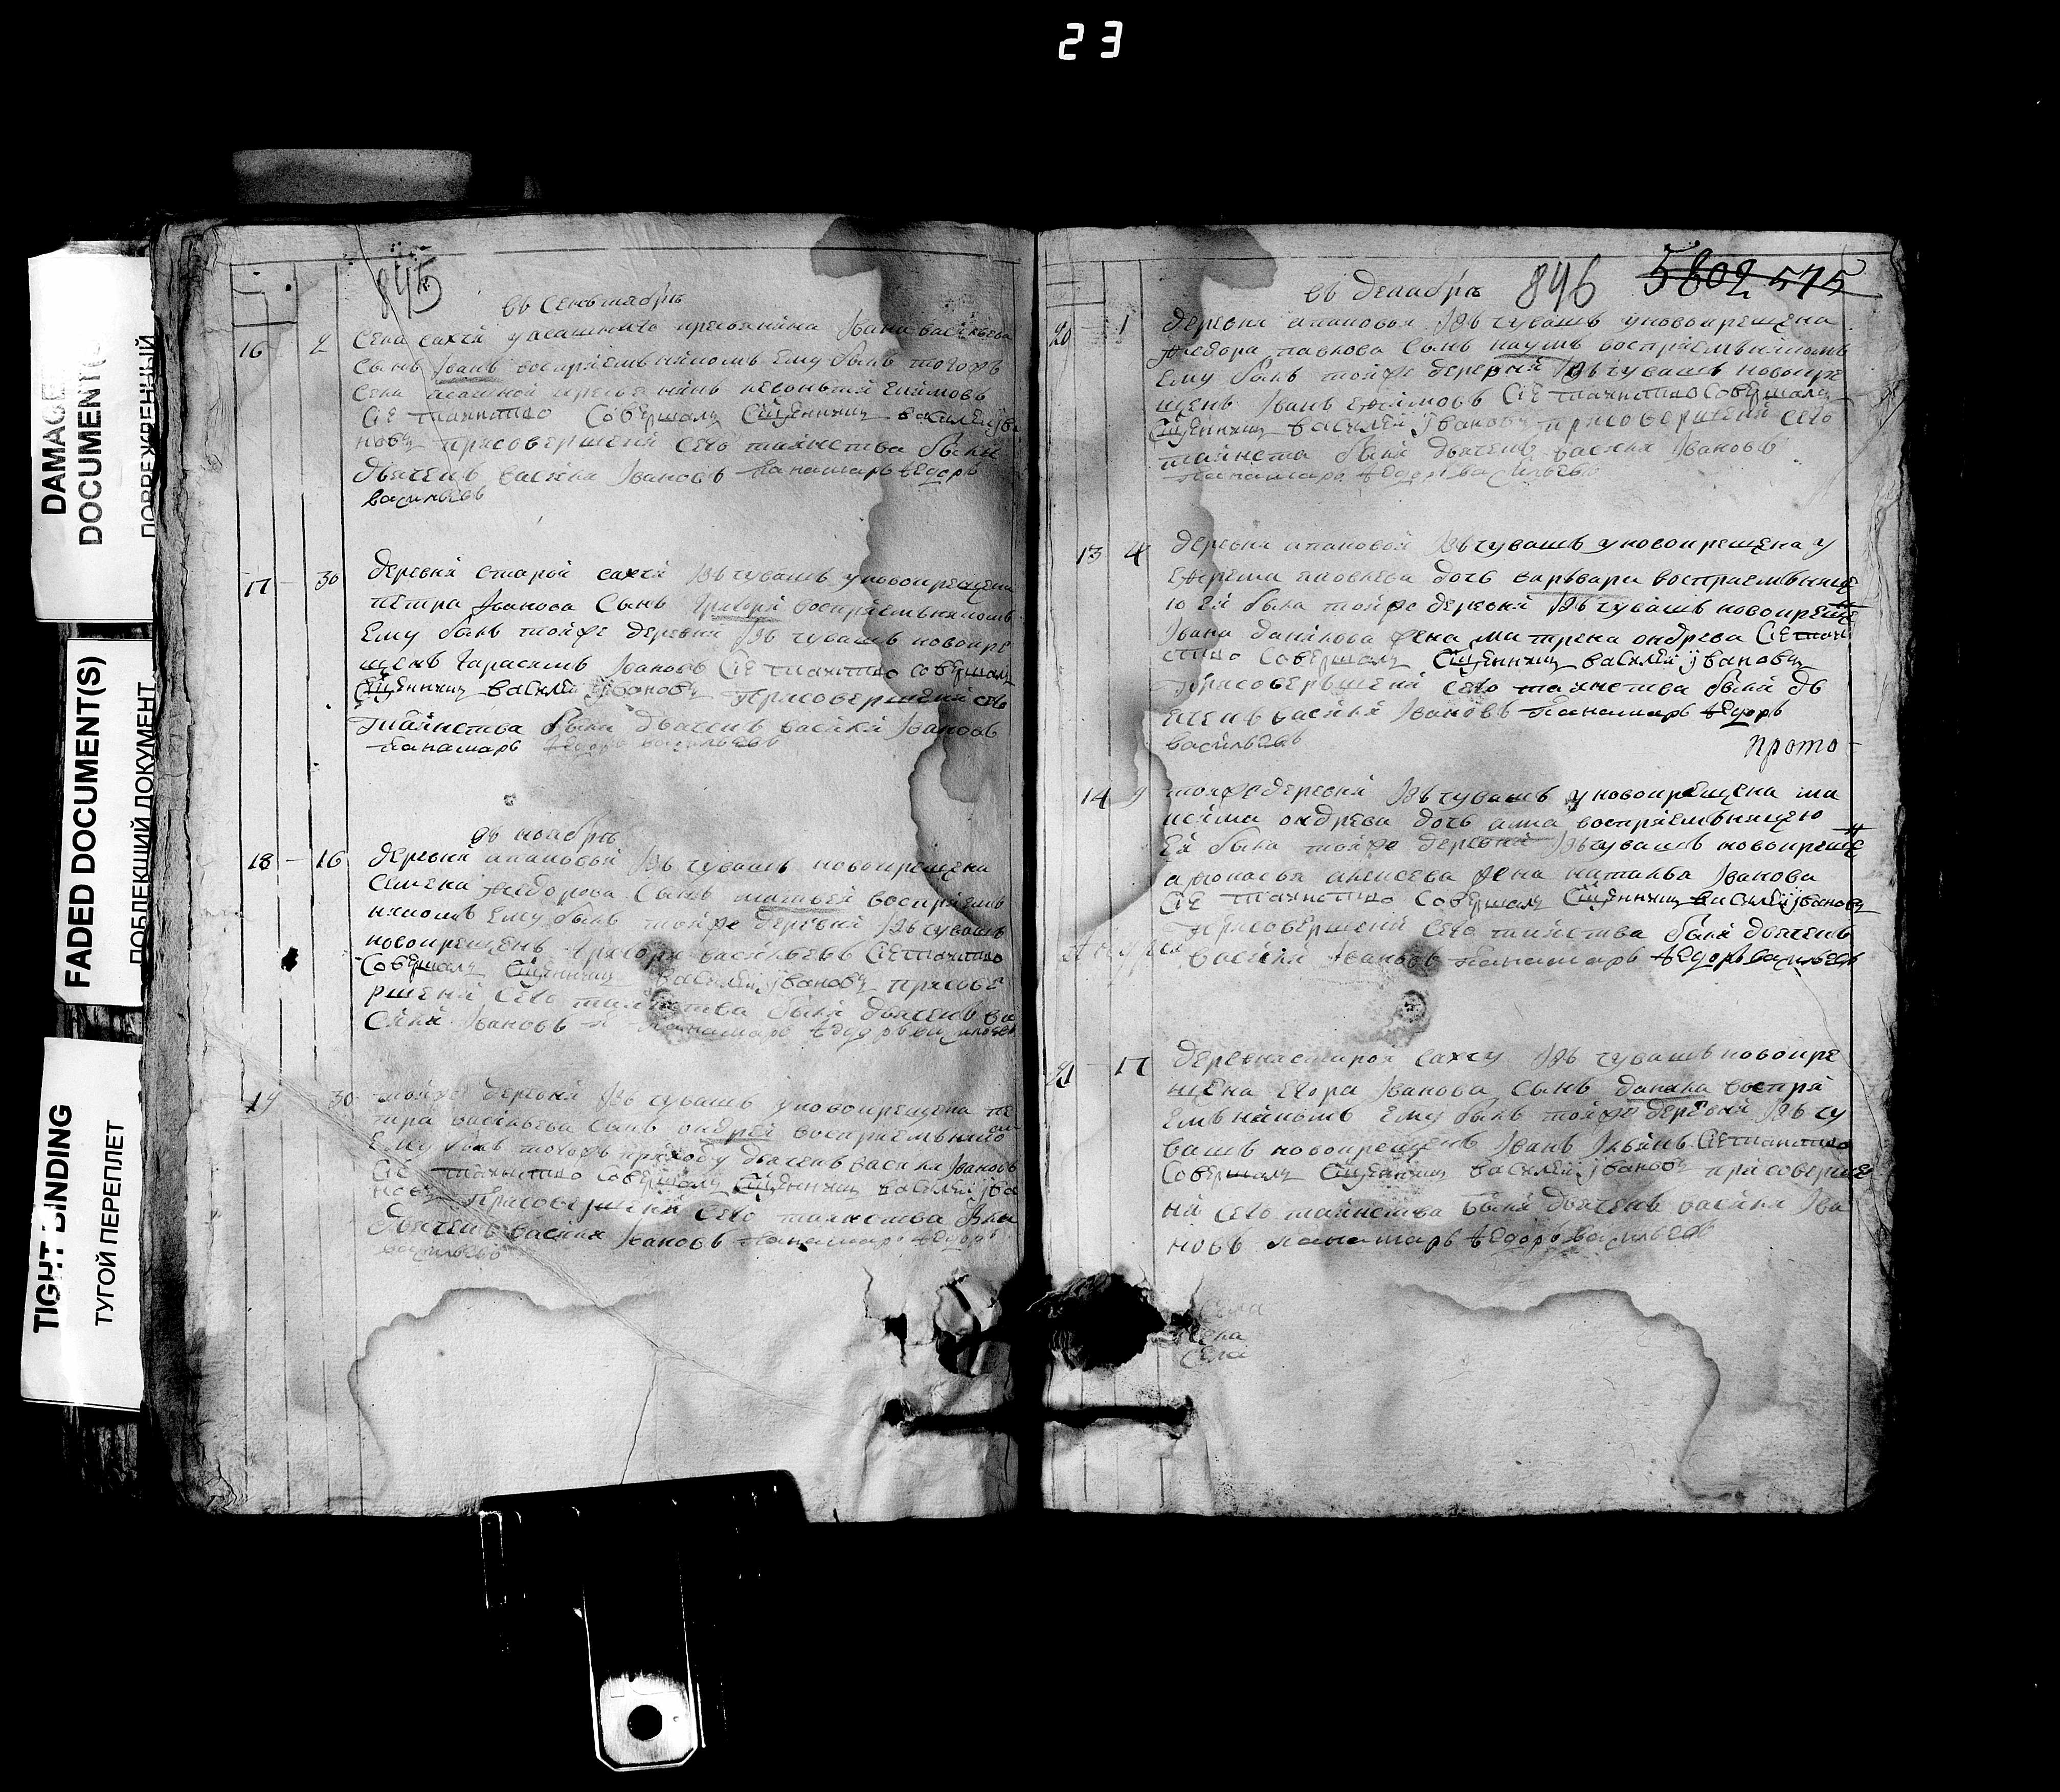 23
DAMAGE
DOCUMENT(
ПОВРЕЖДЕННЫЙ
FADED DOCUMENT(S)
ПОБЛЕКШИЙ ДОКУМЕНТ
TIGHT BINDING
ТУГОЙ ПЕРЕПЛЕТ
845
въ сентябрѣ
16 2 села сахчи уясашного кресьянина Iвана васильева
сынъ Iванъ восприемъникомъ ему былъ тогожъ
села ясашной кресьянинъ леонътей
Сiе таинство Совершалъ Сщенникъ василей Iва
новъ присовершени сего таинства были
дьячекъ василей Iвановъ панамарь Федоръ
васильевъ
17 30 деревни старой сахчи iзъ чувашъ уновокрещена
петра Iванова сынъ григорей восприемъникомъ
ему былъ тойже деревни iзъ чувашъ новокре
щенъ гарасимъ Iвановъ Сiе таинство совершалъ
Сщенникъ василей Iвановъ присовершени сего
таинства были дьячекъ василей Iвановъ
панамарь Федоръ васильевъ
въ ноябрѣ
18 16 деревни апановой iзъ чувашъ новокрещена
семена Федорова сынъ матвей восприемъ
никомъ ему былъ тойже деревни iзъ чувашъ
новокрещенъ григорей васильевъ Сiе таинство
Совершалъ Сщенникъ василей Iвановъ присове
ршени сего таинства были дьячекъ ва
силей Iвановъ панамарь Федоръ васильевъ
19 30 тойже деревни iзъ чувашъ уновокрещена пе
тра васильева сынъ андрей восприемънико
ему былъ тогожъ приходу дьячекъ василей Iвановъ
Сiе таинство Совершалъ Сщенникъ василей Iва
новъ присовершени сего таинства были
дьячекъ василей Iвановъ панамарь Федоръ
васильевъ
въ декабрѣ 896 5802 575
20 1 деревни апановой iзъ чувашъ уновокрещена
Федора павлова сынъ наумъ восприемъникомъ
ему былъ тойже деревни iзъ чувашъ новокре
щенъ Iванъ ефимовъ Сiе таинство Совершалъ
Сщенникъ василей Iвановъ присовершени сего
таинста были дьячекъ василей Iвановъ
панамарь Федоръ васильевъ
13 4 деревни апановой iзъ чувашъ уновокрещена у
ефрема яковлева дочь варъвара восприемънице
ю ей была тойже деревни iзъ чувашъ новокреще
Iвана данилова жена матрена ондрева Сiе таин
ство Совершалъ Сщенникъ василей Iвановъ
присовершени сего таинства были дь
ячекъ василей Iвановъ панамарь Федоръ
васильевъ
прото
14 9 тойже деревни iзъ чувашъ уновокрещена ма
ксима ондрева дочь анна восприемъницею
ей была тойже деревни iзъ чувашъ новокреще
афонасья алексеева жена наталья Iванова
Сiе таинство Совершалъ Сщенникъ василей Iвановъ
присовершени сего таинства были дьячекъ
василей Iвановъ панамарь Федоръ васильевъ
21 17 деревни старой сахчу iзъ чувашъ новокре
щена егора Iванова сынъ данила воспри
емъникомъ ему былъ тойже деревни iзъ чу
вашъ новокрещенъ Iванъ Сiе таинство
Совершалъ Сщенникъ василей Iвановъ присоверше
ни сего таинства были дьячекъ василей Iва
новъ панамарь Федоръ васильевъ
села
села
села